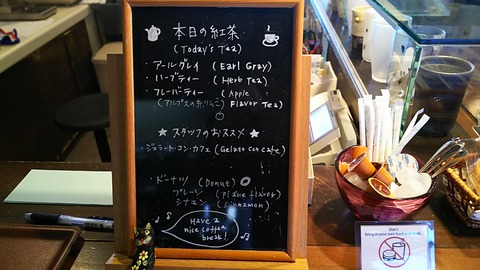 本日の紅茶
(Today's Tea)
アールグレイ (Earl Gray)
ハーブティー (Herb Tea)
フレーバーティー (Apple
(アルプスの赤りんご) Flavor Tea)
★ スタッフのおススメ ★
・ジェラート・コン・カフェ (Gelato con cafe)
・ドーナツ (Donut)
プレーン (Plane flavor)
シナモン (Cinnamon)
Have a
nice coffee
break!
Don't
bring in your own food and drink